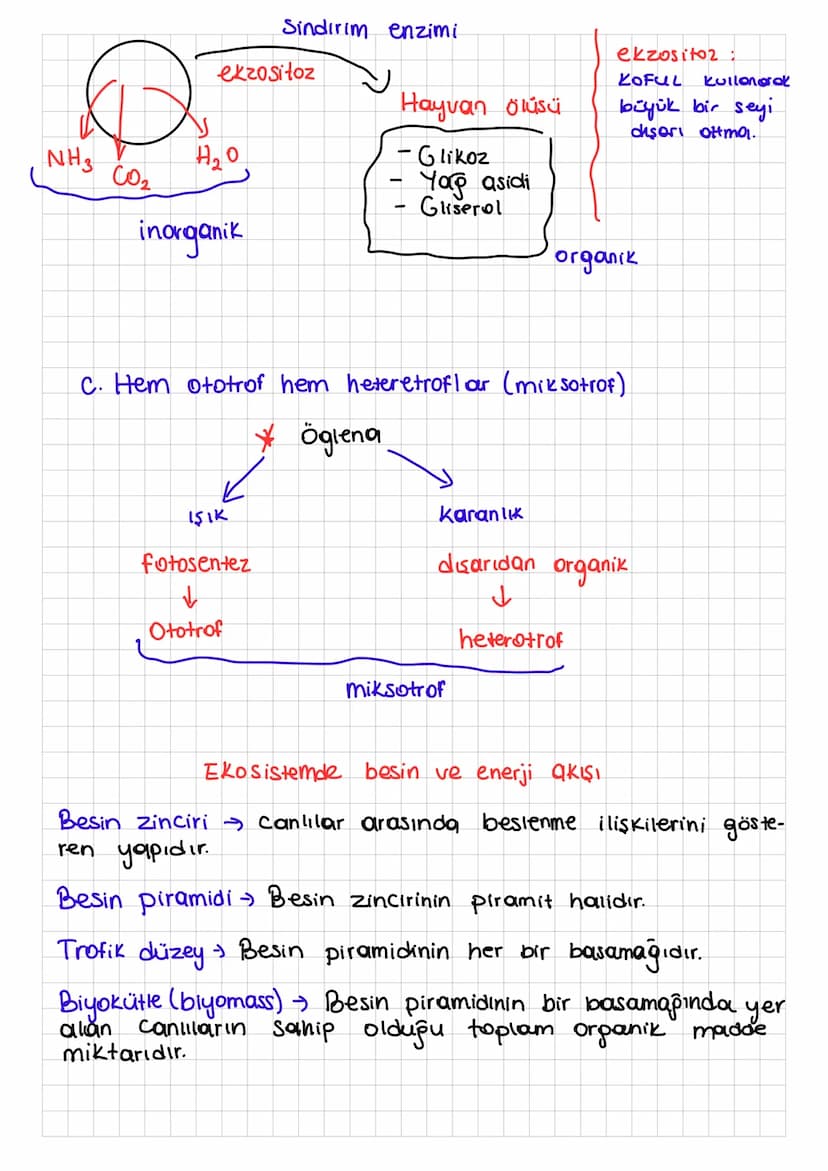 Sindirim enzimi
ekzositoz
Hayvan ölüsü
NH3
CO2
H2O
inorganik
- Glikoz
- Yağ asidi
- Gliserol
organik
ekzositoz :
Koful kullanarak
büyük bir seyi
dışarı atma.
C. Hem ototrof hem heteretroflar (miksotrof)
* Öglena
ışık
Karanlık
fotosentez
dısarıdan organik
↓
↓
Ototrof
heterotrof
miksotrof
Ekosistemde besin ve enerji akışı
Besin zinciri → canlılar arasında beslenme ilişkilerini göste-
ren yapıdır.
Besin piramidi → Besin zincirinin piramit halidir.
Trofik düzey → Besin piramidinin her bir basamağıdır.
Biyokütle (biyomass) → Besin piramidinin bir basamağında yer
alan canlıların sahip olduğu toplam organik madde
miktarıdır.